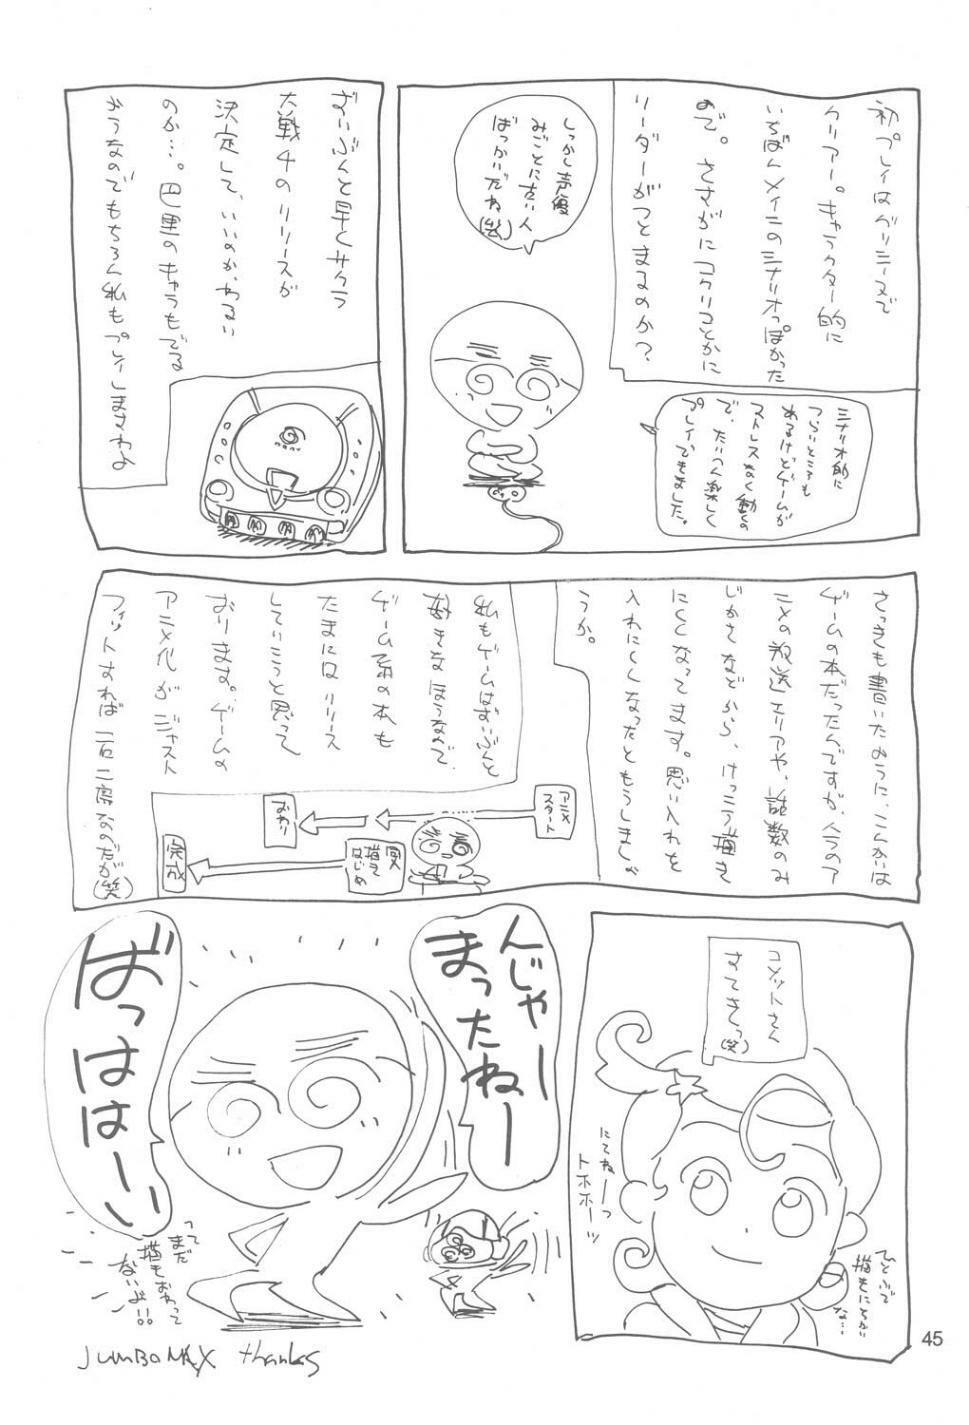 初プレイはグリシーヌで
クリアー。キャラクター的に
いちばんメインのシナリオっぽかった
ので。さすがにコクリコとかに
リーダーがつとまるのか?
しっかし声優
みごとに古い人
ばっかいだね
(笑)
シナリオ的に
つらいところも
あるけどゲームが
ストレスなく動くの
で、たいへん楽しく
プレイできました。
ずいぶんと早くサクラ
大戦4のリリースが
決定して、いいのか、わるい
のか…。巴里のキャラもでる
ようなのでもちろん私もプレイしますわよ
さっきも書いたように、こんかいは
ゲームの本だったんですが、今のア
ニメの放送エリアや、話数のみ
じかさなどから、けっこう描き
にくくなってます。思い入れを
入れにくくなったともうしましょ
うか。
私もゲームはずいぶんと
好きなほうなんで、
ゲーム系の本も
たまにはリリース
していこうと思って
おります。ゲームの
アニメ化がジャスト
フィットすれば一石二鳥なのだが(笑)
アニメ
スタート
おわり
描き
はじめ
完成
コメットさん
すてきっ
(笑)
にてねーっ
トホホーッ
ひとふで
描きにちかい
な…
んじゃー
まったねー
ばっははーい
ってまだ
描きおわって
ないよ!!
JUMBOMAX thanks
45